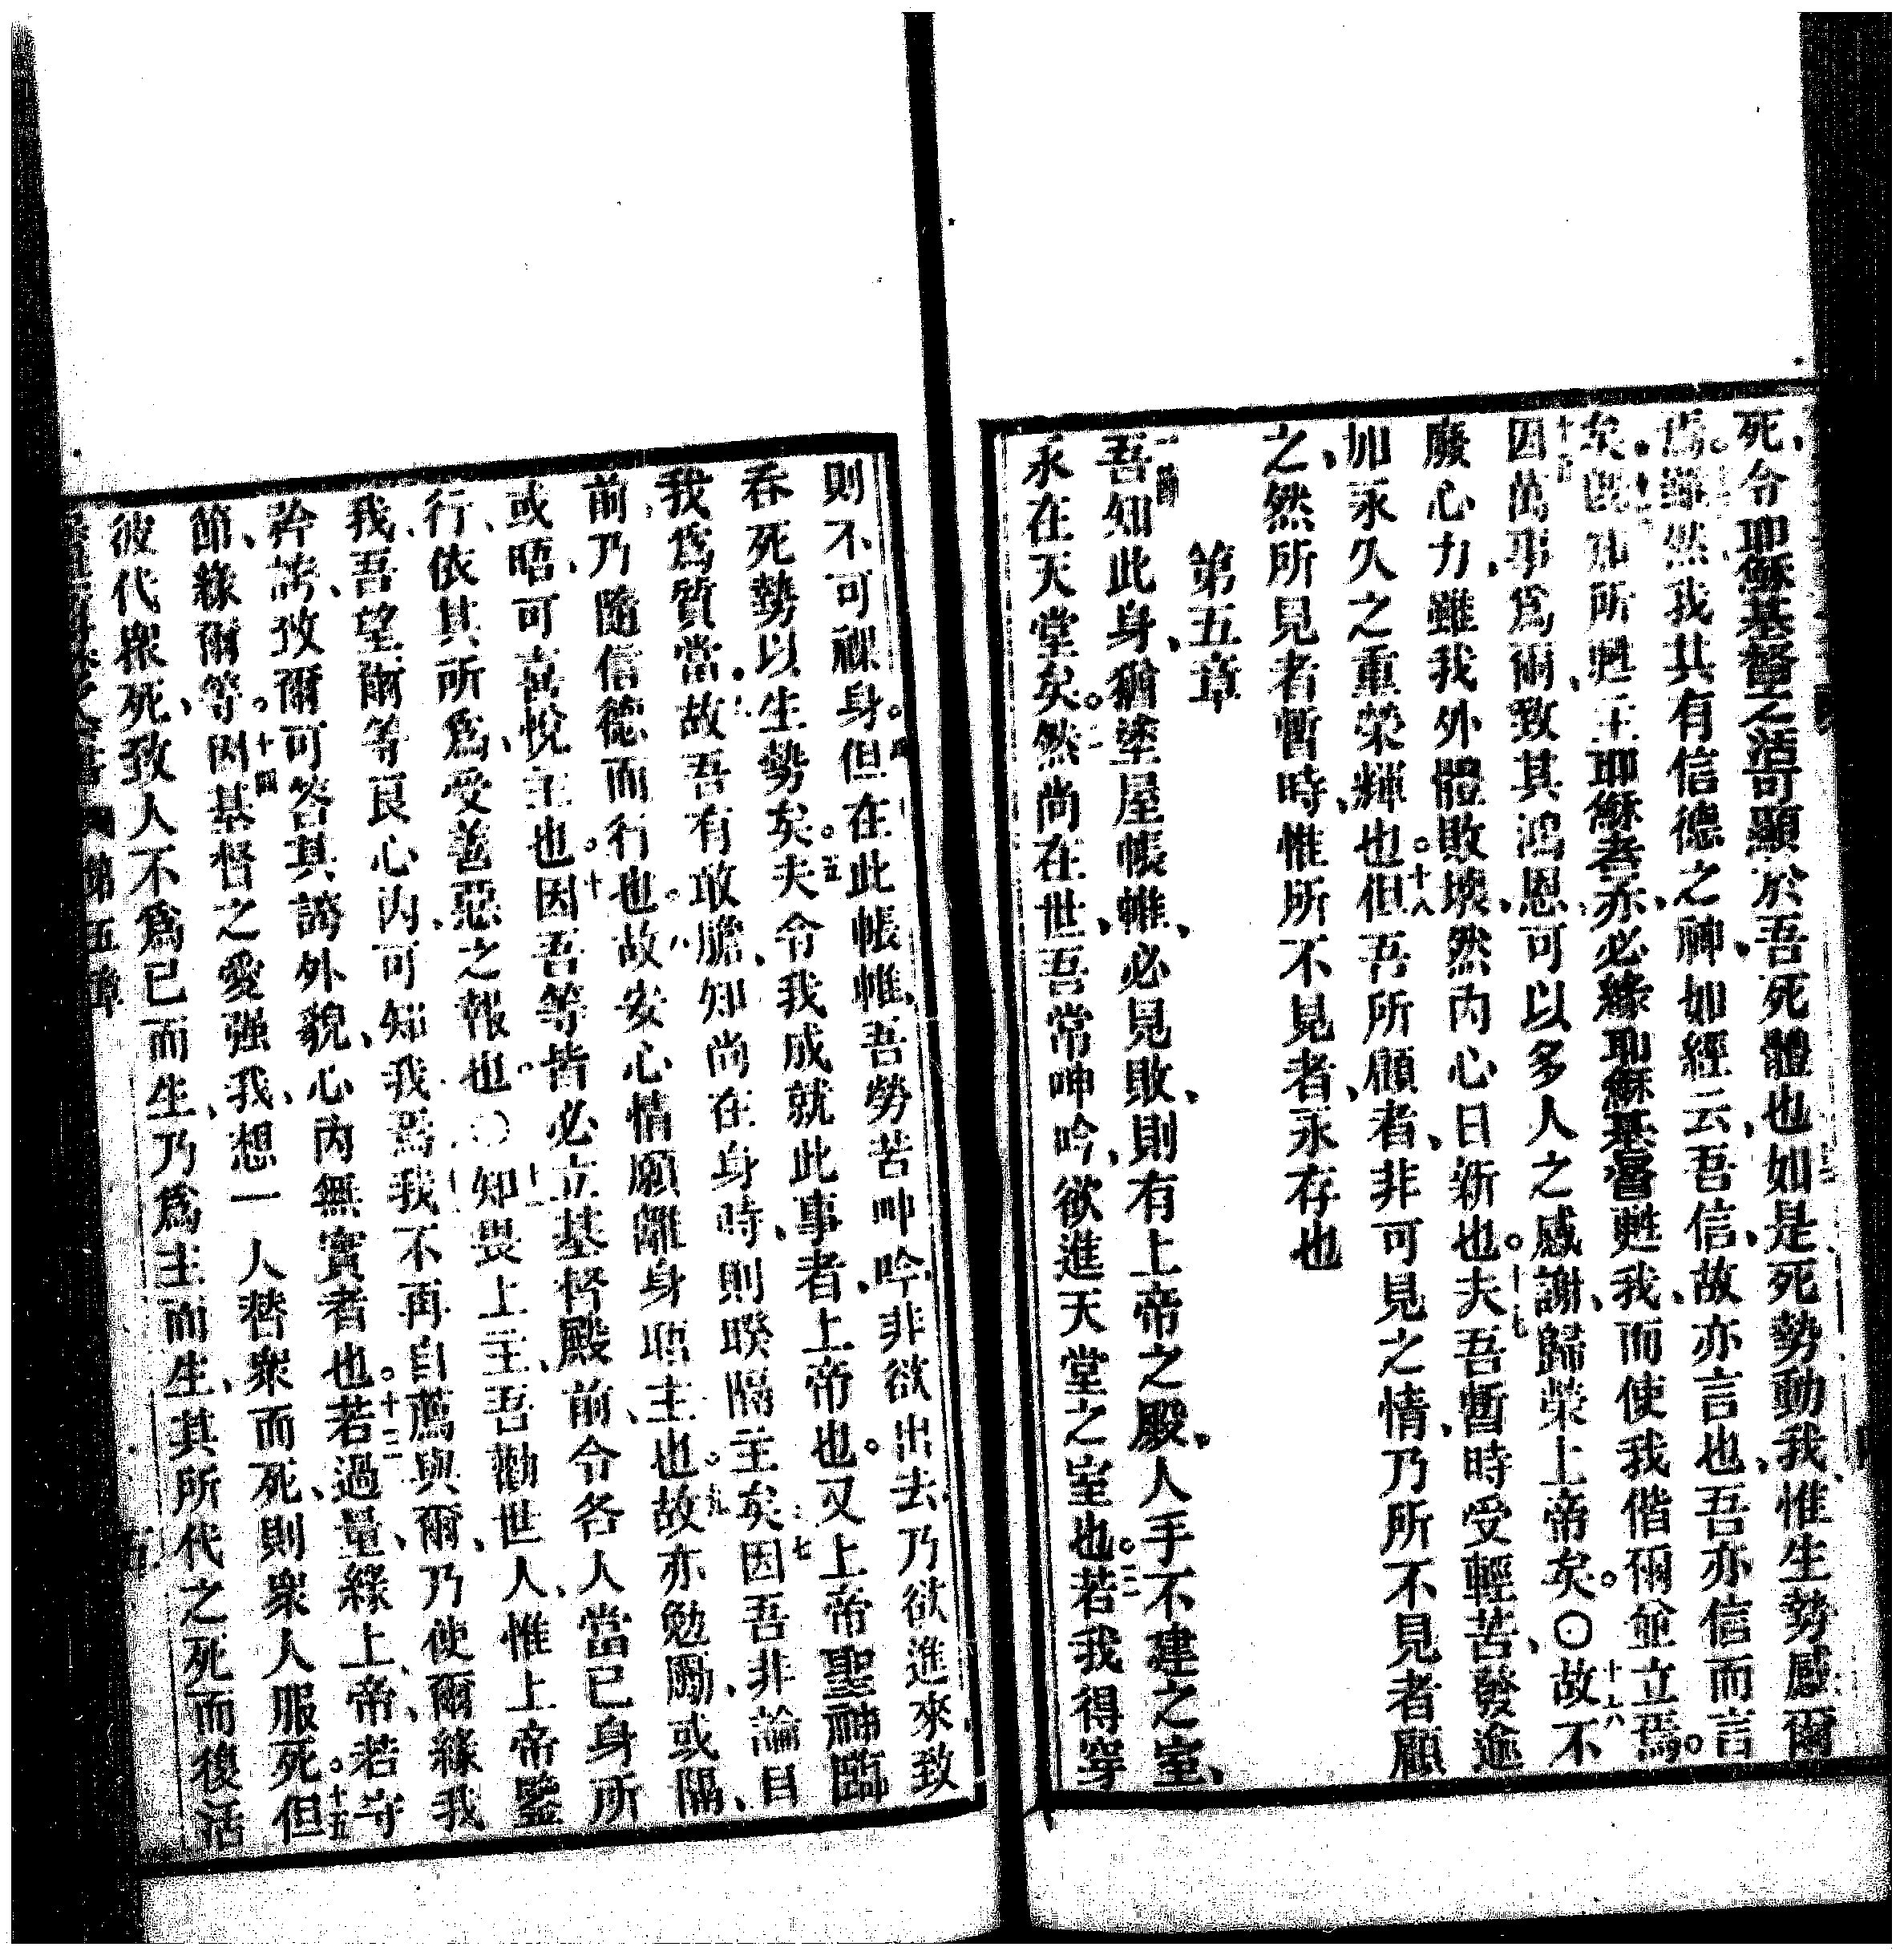 死、令耶穌基督之活可顯於吾死體也如是死勢動我、惟生勢感爾
焉。雖然我共有信德之神、如經云、吾信、故亦言也、吾亦信而言
矣。既知所甦主耶穌者、亦必緣耶穌基督甦我、而使我偕爾並立焉。
十五因萬事爲爾、致其鴻恩可以多人之感謝、歸榮上帝矣。〇十六故不
廢心力、雖我外體敗壞、然內心日新也。十七夫吾暫時受輕苦、發逾
加永久之重榮輝也。十八但吾所顧者、非可見之情、乃所不見者顧
之、然所見者暫時、惟所不見者、永存也
第五章
一節吾知此身、猶塗屋帳帷、必見敗、則有上帝之殿、人手不建之室、
永在天堂矣。二然尚在世、吾常呻吟、欲進天堂之室也。三若我得穿
則不可裸身。四但在此帳帷、吾勞苦呻吟、非欲出去、乃欲進來、致
吞死勢以生勢矣。五夫令我成就此事者、上帝也。又上帝聖神臨
我、爲質當。故吾有敢膽、知尚在身時、則暌隔主矣、七因吾非論目
前、乃隨信德而行也。八故安心情願離身、晤主也。九故亦勉勵、或隔、
或晤、可喜悅主也。十因吾等皆必立基督殿前、令各人當已身所
行、依其所爲、受善惡之報也。〇十一知畏上主、吾勸世人、惟上帝鑒
我、吾望爾等良心內、可知我焉、我不再自薦與爾、乃使爾緣我
矜誇、致爾可答其誇外貌、心內無實者也。十三若過量、緣上帝、若守
節、緣爾等。十四因基督之愛强我、想一人替衆而死、則衆人服死。十五但
彼代衆死、致人不爲已而生、乃爲主而生、其所代之死而復活
第五章